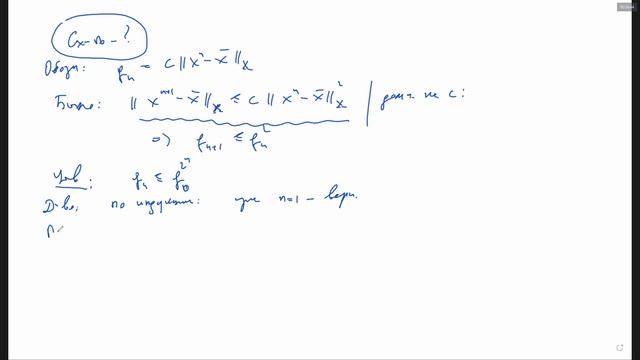 Сх-ть - ?
Обозн: q_n = C || x^n - x̄ ||_X
Было: || x^{n+1} - x̄ ||_X ≤ C || x^n - x̄ ||_X^2 | домн. на C:
=> q_{n+1} ≤ q_n^2
Утв: q_n ≤ q_0^{2^n}
Д-во: по индукции: при n=1 - верн.
П